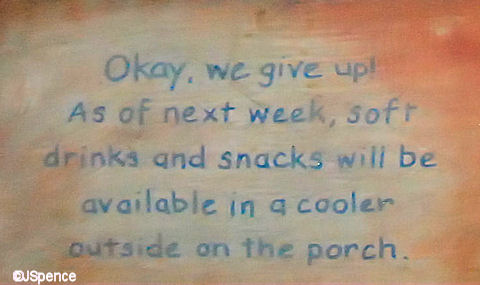 Okay, we give up!
As of next week, soft
drinks and snacks will be
available in a cooler
outside on the porch.
©JSpence